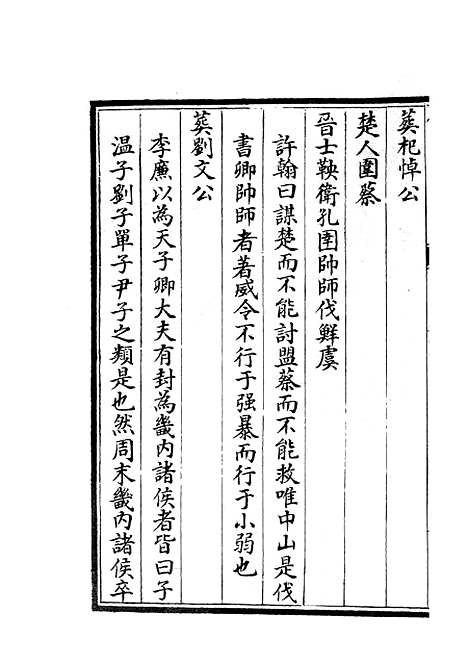 葬杞悼公
楚人圍蔡
晉士鞅衛孔圉帥師伐鮮虞
許翰曰謀楚而不能討盟蔡而不能救唯中山是伐
書卿帥師者著威令不行于强暴而行于小弱也
葬劉文公
李廉以為天子卿大夫有封為畿内諸侯者皆曰子
温子劉子單子尹子之類是也然周末畿内諸侯卒